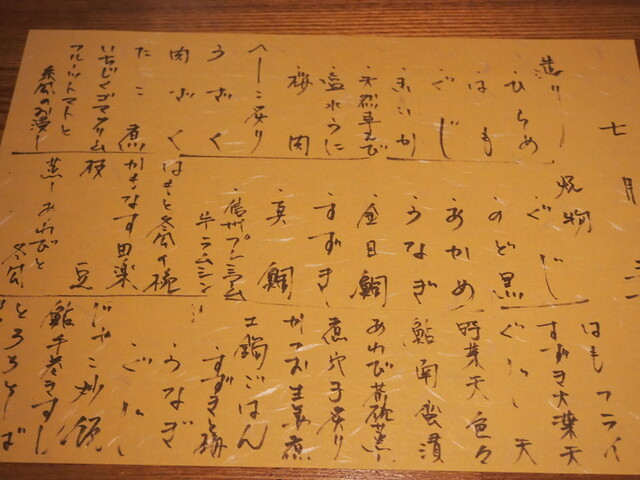 七月三
造り
ひらめ
はも
ぐじ
あおりいか
天然車えび
塩水うに
梅肉
へしこ炙り
うざく
肉ざく
たこ煮
いちじくゴマクリーム
フルーツトマトと
冬瓜のお浸し
焼物
ぐじ
のど黒
あかめ
うなぎ
金目鯛
すずき
真鯛
信州プレミアム
牛ラムシン
はもと冬瓜の椀
かもなす田楽
枝豆
蒸しあわびと
冬瓜
はもフライ
すずき大葉天
ぐじ天
野菜天色々
鮎南蛮漬
あわび茶碗蒸し
煮穴子炙り
かつお生姜煮
土鍋ごはん
すずきと梅
うなぎ
じゃこ炒飯
鮎手巻きすし
とろろそば